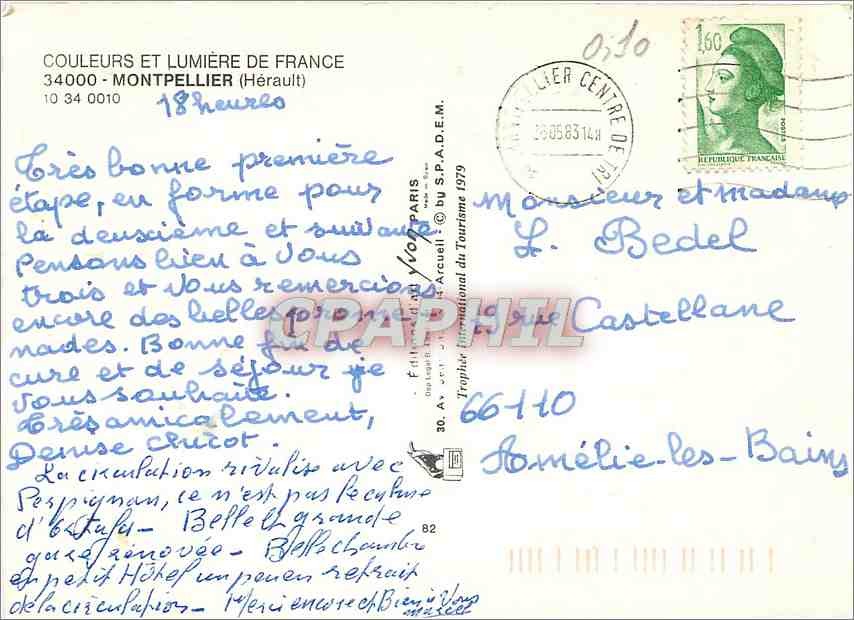 COULEURS ET LUMIÈRE DE FRANCE
34000 - MONTPELLIER (Hérault)
10 34 0010
18 heures
Très bonne première
étape, en forme pour
la deuxième et suivante
Pensons bien à vous
trois et vous remercions
encore des belles prome-
nades. Bonne fin de
cure et de séjour je
vous souhaite.
Très amicalement,
Denise Chicot.
La circulation rivalise avec
Perpignan, ce n'est pas le calme
d'
Belle et grande
gare rénovée - Belle chambre
en petit Hôtel un peu en retrait
de la circulation - Merci encore et Bien à Vous
Marcel
82
Editions d'art Yvon PARIS
Made in
Dép. Légal
30. Av. Arcueil - © by S.P.A.D.E.M.
Trophée International du Tourisme 1979
0,10
MONTPELLIER CENTRE DE TRI
05 83 14H
1,60
POSTES
REPUBLIQUE FRANÇAISE
Monsieur et madame
L. Bedel
19 rue Castellane
66110
Amélie-les-Bains
CPAPHIL